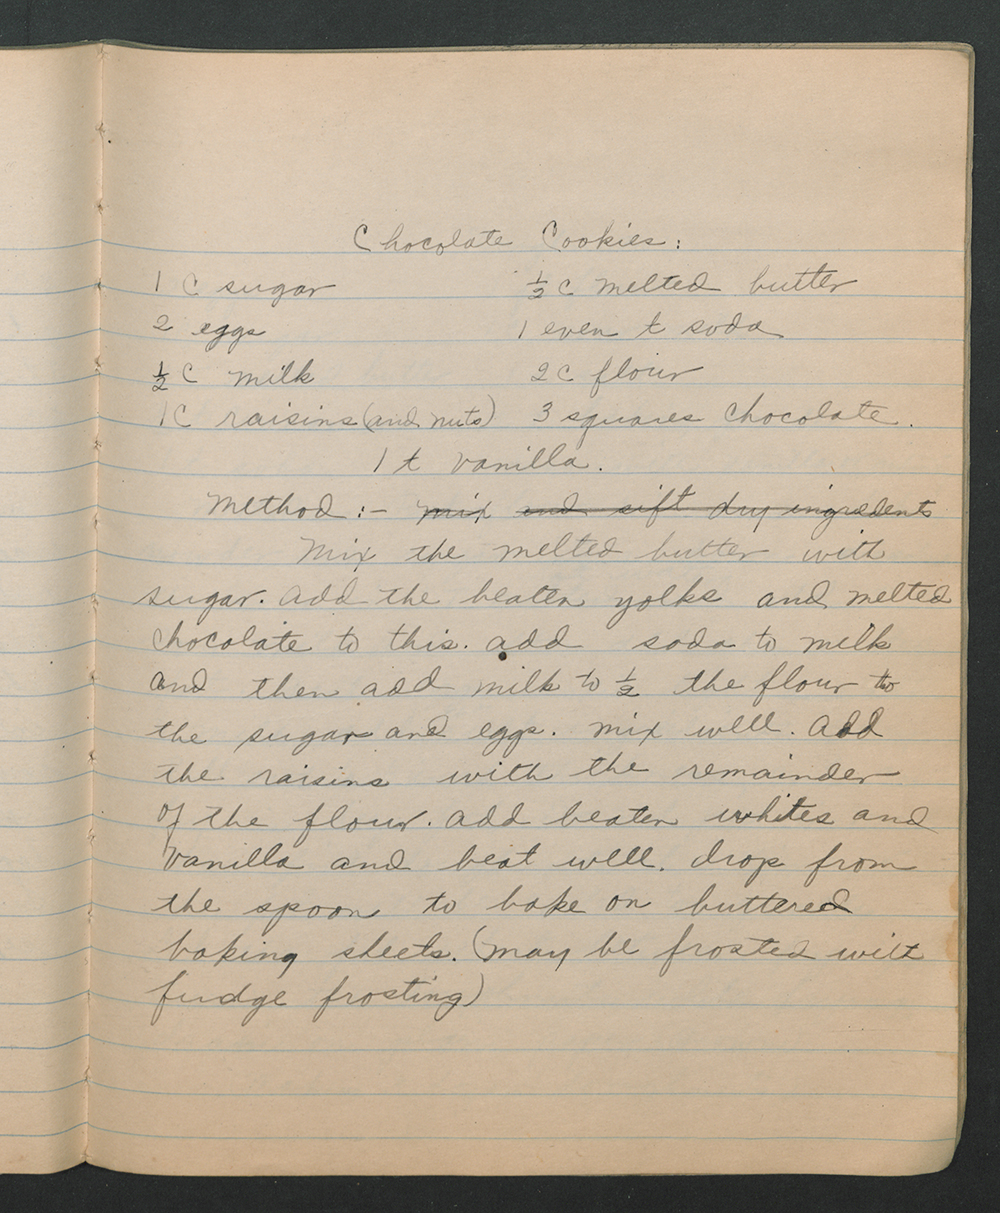 Chocolate Cookies:
1 C sugar ½ c melted butter
2 eggs 1 even t soda
½ C milk 2 C flour
1 C raisins (and nuts) 3 squares chocolate.
1 t vanilla.
Method:- mix and sift dry ingredents
Mix the melted butter with
sugar. add the beaten yolks and melted
chocolate to this. add soda to milk
and then add milk to ½ the flour to
the sugar and eggs. mix well. add
the raisins with the remainder
of the flour. add beaten whites and
vanilla and beat well. drop from
the spoon to bake on buttered
baking sheets. (may be frosted with
fudge frosting)